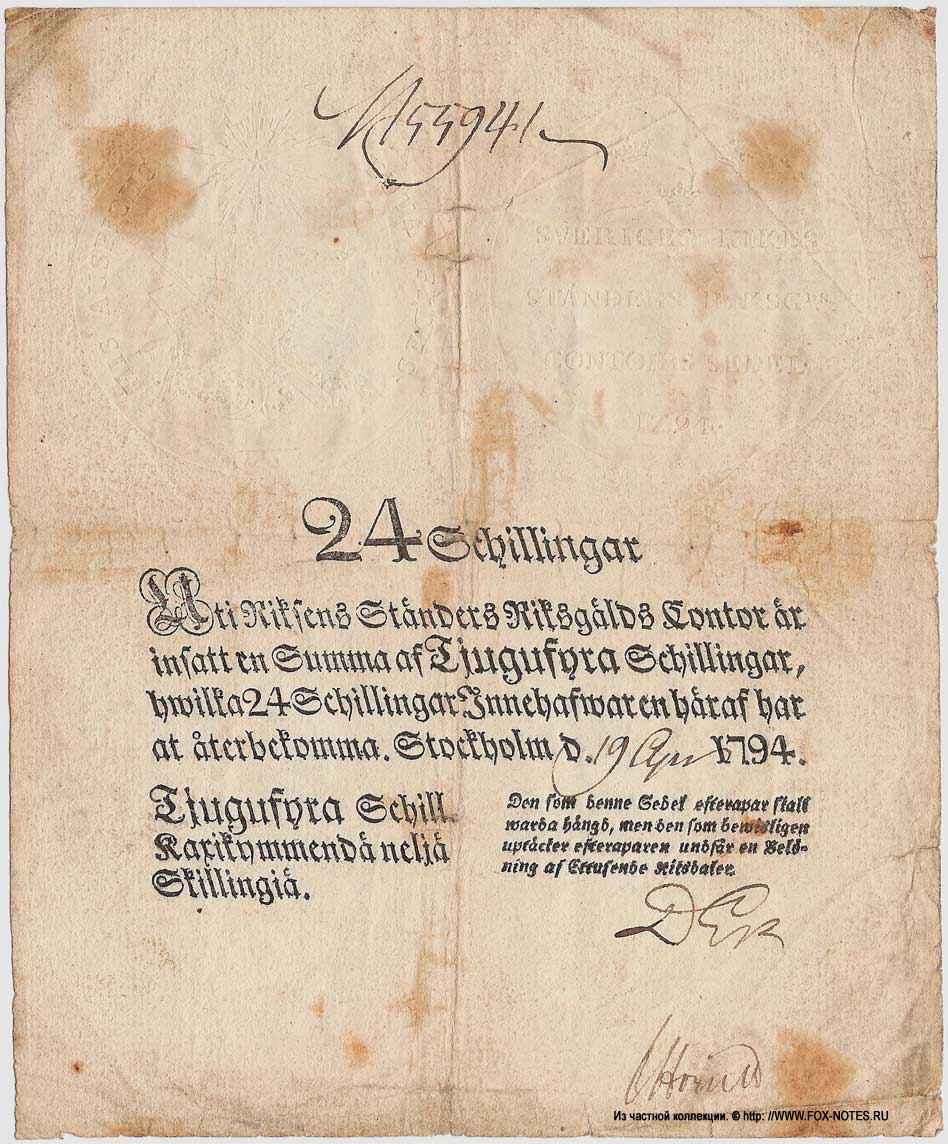 55941
SVERIGES RIKES
STÄNDERS RIKSG:DS
CONTOIRS SEDEL
1794.
24 Schillingar
Uti Riksens Ständers Riksgälds Contor är
insatt en Summa af Tjugufyra Schillingar,
hwilka 24 Schillingar Innehafwaren häraf har
at återbekomma. Stockholm d. 19 Apr 1794.
Tjugufyra Schill.
Kaxikymmendä neljä
Skillingiä.
Den som denne Sedel efterapar skall
warda hängd, men den som bewisligen
uptäcker efteraparen undfår en Belö-
ning af Ettusende Riksdaler.
Из частной коллекции. © http: //WWW.FOX-NOTES.RU